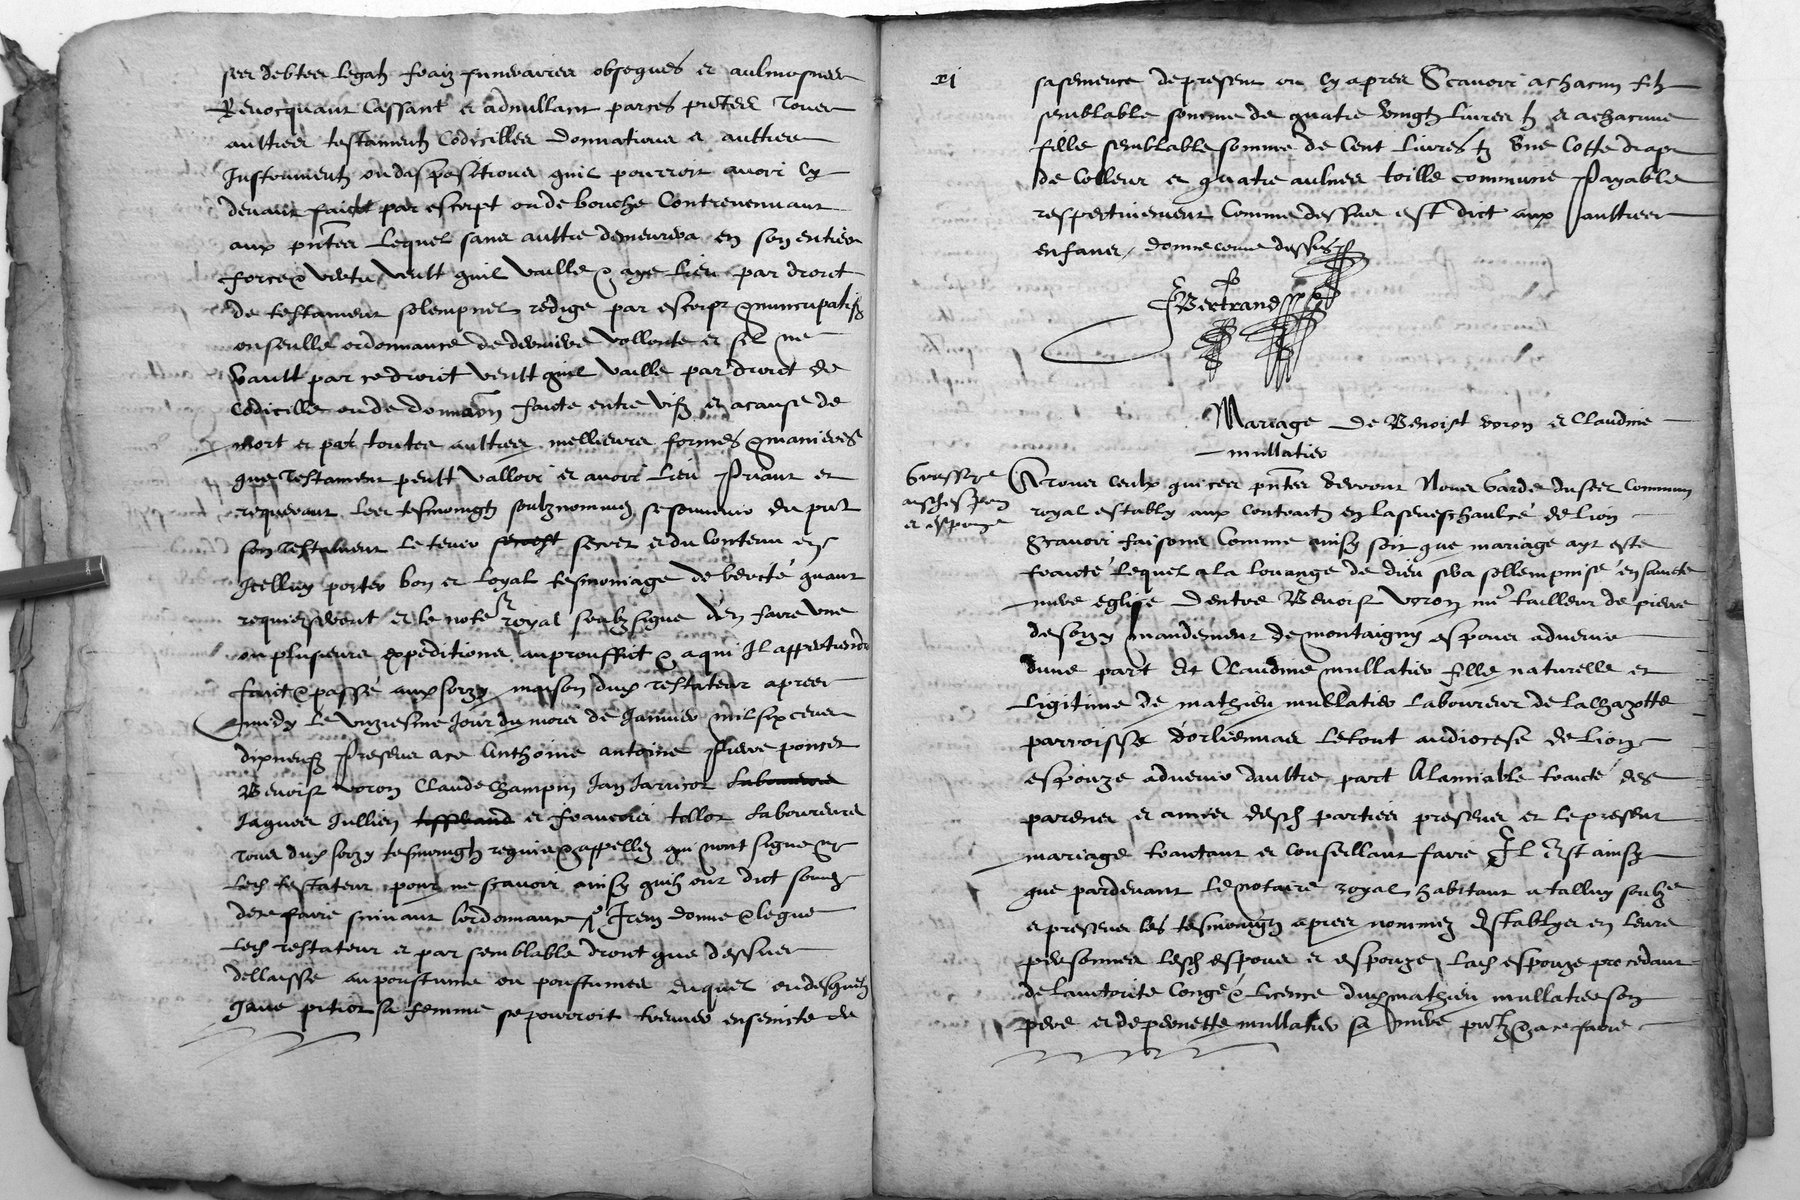 ses debtes legatz fraiz funeraires obseques et aulmosnes
Revocquant cassant et adnullant par ces pntes tous
aultres testamentz codicilles donnations et aultres
Instrumentz ou dispositions quil pourroit avoir cy
devant faict par escript ou de bouche contrevenant
aux pntes lequel sans aultre demeurera en son entier
force & vertu veult quil vaille & aye lieu par droict
de testament solempnel redige par escript & nuncupatifz
ou seulle ordonnance de derniere vollonte et sil ne
vault par ce droict veult quil vaille par droict de
codicille ou de donnaon faicte entre vifz et a cause de
mort et par toutes aultres meilleures formes & manieres
que testament peult valloir et avoir lieu Priant et
requerant les tesmoingtz soubznommez se souvenir du pnt
son testament le tenir secret et du contenu en
Icelluy porter bon et loyal tesmoniage de verité quant
requis seront et le notre royal soubzsigne den faire une
ou plusieurs expeditions au prouffict & a qui Il appartiendra
faict & passé aux sorzy maison dud testateur apres
midy le unziesme Jour du mois de Janvier mil six cens
dix neufz Presens a ce Anthoine antoine Pierre poncet
Benoist voron Claude champin Jan Jarricot laboureurs
Jaques Jullien et francois tollot laboureurs
Tous dud sorzy tesmoingtz requis & appellez qui nont signe ny
led testateur pour ne scavoir ainsy quilz ont dict
de ce faire suivant lordonnance Item donne & legue
led testateur et par semblable droict que dessus
dellaisse au poustume ou poustumes duquel ou desquelz
Jane pitiot sa femme se pourroit treuver enseincte de
xi
sa semence de present ou cy apres Scavoir a chacun filz
semblable somme de quatre vingtz livres tz et a chacune
fille semblable somme de cent livres tz Une cotte drap
de colleur et quatre aulnes toille commune Payable
respectivement comme dessus est dict aux aultres
enfans, donne come dessus
Bertrand
Mariage de Benoist voron et Claudine
mullatier
Grossoye
ausd espoux
et espouze
A Tous ceulx que ces pntes verront Nous Garde du seel commun
royal estably aux contractz en la seneschaulcé de Lion
Scavoir faisons comme ainsy soit que mariage ayt este
traicté lequel a la louange de dieu sera sollempnisé en saincte
mere eglise Dentre Benoist voron me tailleur de pierre
de sorzy mandement de montaigny espoux advenir
dune part Et Claudine mullatier fille naturelle et
Ligitime de mathieu mullatier laboureur de la chazotte
parroisse d'orliennas le tout au diocese de Lion
espouze advenir daultre part A lamiable traicté des
parens et amies desd parties presens et le present
mariage traictant et conseillant faire Il Est ainsy
que pardevant le notaire royal habitant a talluy soubze
et presens les tesmoingtz apres nommez Establyes en leurs
personnes lesd espoux et espouze, lad espouze procedant
de lauctorite congé & licence dud mathieu mullatier son
pere et de pernette mullatier sa mere pntz & a ce faire